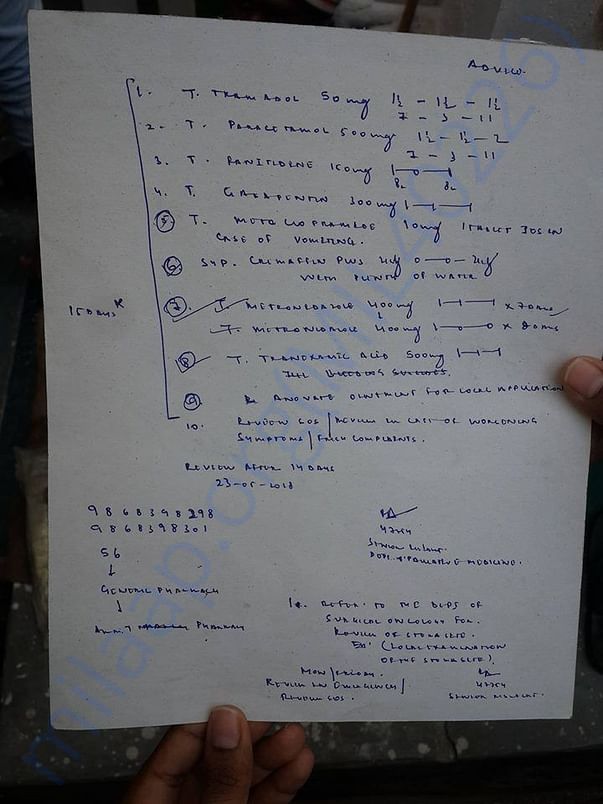 ADVICE.
1. T. TRAMADOL 50mg 1½ - 1½ - 1½
7 - 3 - 11
2. T. PARACETAMOL 500mg 1½ - 1½ - 2
7 - 3 - 11
3. T. RANITIDINE 150mg 1-0-1
4. T. GABAPENTIN 300mg 1-1-1
5. T. METOCLOPRAMIDE 10mg 1 TABLET SOS IN
CASE OF VOMITING.
6. SYP. CREMAFFIN PLUS 0
WITH PLENTY OF WATER
15 DAYS
7. T. METRONIDAZOLE 400mg 1-1-1 x 7 DAYS
T. METRONIDAZOLE 400mg 1-0-0 x DAYS
8. T. TRANEXAMIC ACID 500mg 1-1-1
TILL BLEEDING SUBSIDES.
9. ANOVATE OINTMENT FOR LOCAL APPLICATION
10. REVIEW SOS / REVIEW IN CASE OF WORSENING
SYMPTOMS / FRESH COMPLAINTS.
REVIEW AFTER 14 DAYS
23-05-2018
9868398298
9868398301
56
↓
GENERAL PHARMACY
↓
PHARMACY
47254
SENIOR RESIDENT
DEPT. OF PALLIATIVE MEDICINE.
REFER TO THE DEPT OF
SURGICAL ONCOLOGY FOR.
REVIEW OF STOMA SITE.
(LOCAL EXAMINATION
OF THE STOMA SITE).
MON / FRIDAY.
REVIEW IN EMERGENCY /
REVIEW SOS.
47254
SENIOR RESIDENT.
milaap.org(MIL402226)